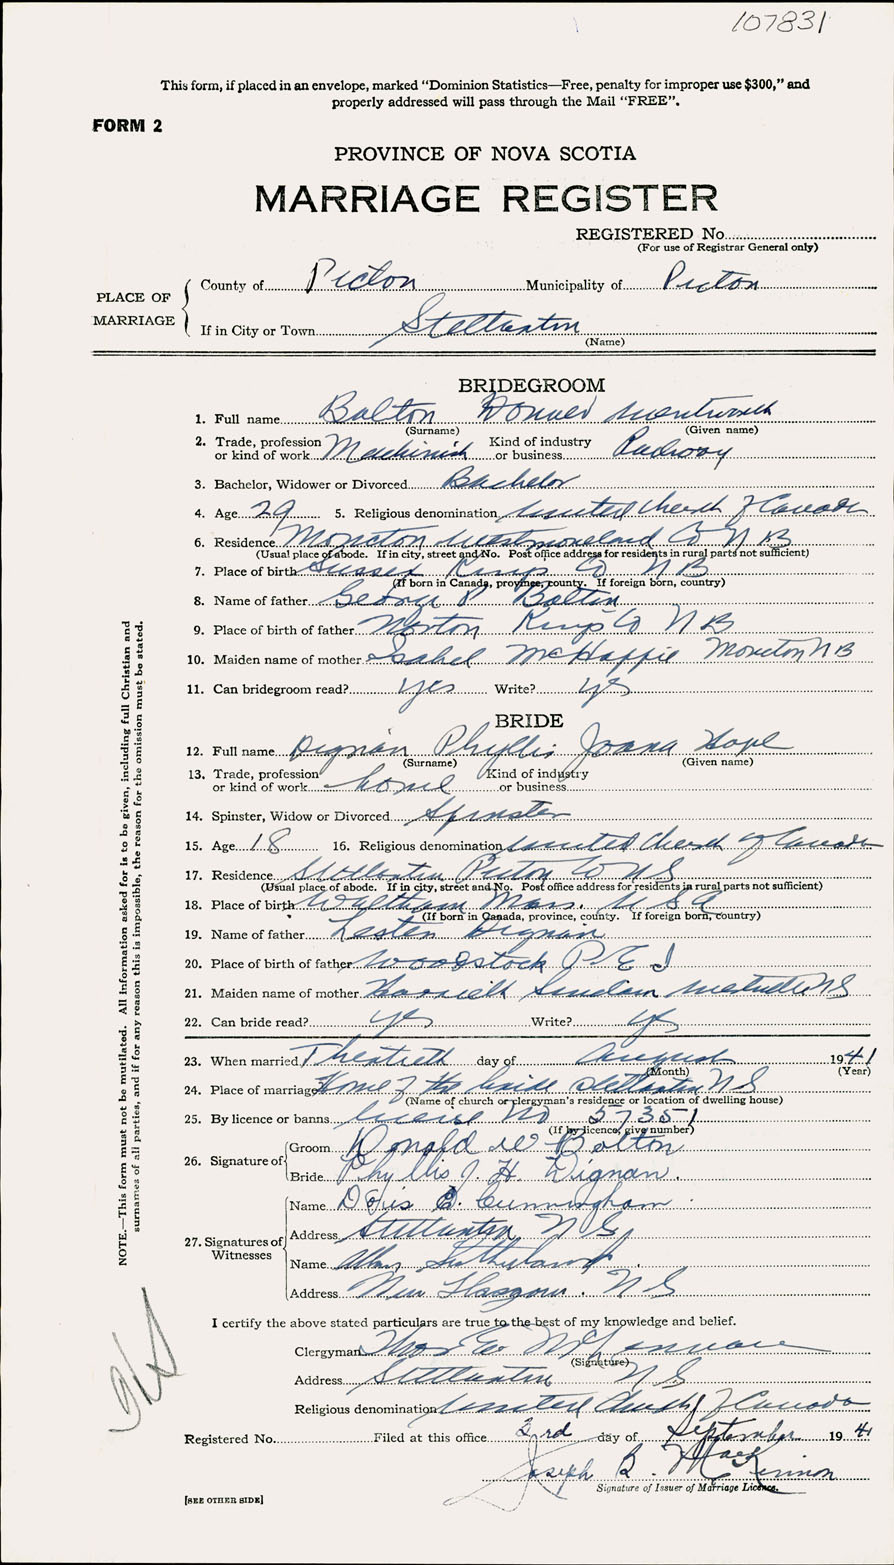 107831
This form, if placed in an envelope, marked "Dominion Statistics—Free, penalty for improper use $300," and
properly addressed will pass through the Mail "FREE".
FORM 2
PROVINCE OF NOVA SCOTIA
MARRIAGE REGISTER
REGISTERED No.
(For use of Registrar General only)
PLACE OF MARRIAGE
County of Pictou Municipality of Pictou
If in City or Town Stellarton
(Name)
BRIDEGROOM
1. Full name Bolton Donald Wentworth
(Surname) (Given name)
2. Trade, profession or kind of work Machinist Kind of industry or business Railway
3. Bachelor, Widower or Divorced Bachelor
4. Age 29 5. Religious denomination United Church of Canada
6. Residence Moncton Westmoreland Co N B
(Usual place of abode. If in city, street and No. Post office address for residents in rural parts not sufficient)
7. Place of birth Sussex Kings Co NB
(If born in Canada, province, county. If foreign born, country)
8. Name of father George P Bolton
9. Place of birth of father Norton Kings Co N B
10. Maiden name of mother Isabel Moncton NB
11. Can bridegroom read? yes Write? yes
BRIDE
12. Full name Dignan Phyllis Joana Hope
(Surname) (Given name)
13. Trade, profession or kind of work home Kind of industry or business
14. Spinster, Widow or Divorced Spinster
15. Age 18 16. Religious denomination United Church of Canada
17. Residence Stellarton Pictou Co NS
(Usual place of abode. If in city, street and No. Post office address for residents in rural parts not sufficient)
18. Place of birth Waltham Mass. USA
(If born in Canada, province, county. If foreign born, country)
19. Name of father Lester Dignan
20. Place of birth of father Woodstock P E I
21. Maiden name of mother Harriett NS
22. Can bride read? yes Write? yes
23. When married Thirtieth day of August 1941
(Month) (Year)
24. Place of marriage Home of the bride Stellarton NS
(Name of church or clergyman's residence or location of dwelling house)
25. By licence or banns licence No 57351
(If by licence, give number)
26. Signature of
Groom Donald W Bolton
Bride Phyllis J H Dignan.
27. Signatures of Witnesses
Name Cunningham
Address Stellarton N S
Name Sutherland
Address New Glasgow. N S
I certify the above stated particulars are true to the best of my knowledge and belief.
Clergyman Thos Geo
(Signature)
Address Stellarton N S
Religious denomination United Church of Canada
Registered No. Filed at this office 3rd day of September 1941
Joseph B. MacKinnon
Signature of Issuer of Marriage Licence.
[SEE OTHER SIDE]
NOTE.—This form must not be mutilated. All information asked for is to be given, including full Christian and
surnames of all parties, and if for any reason this is impossible, the reason for the omission must be stated.